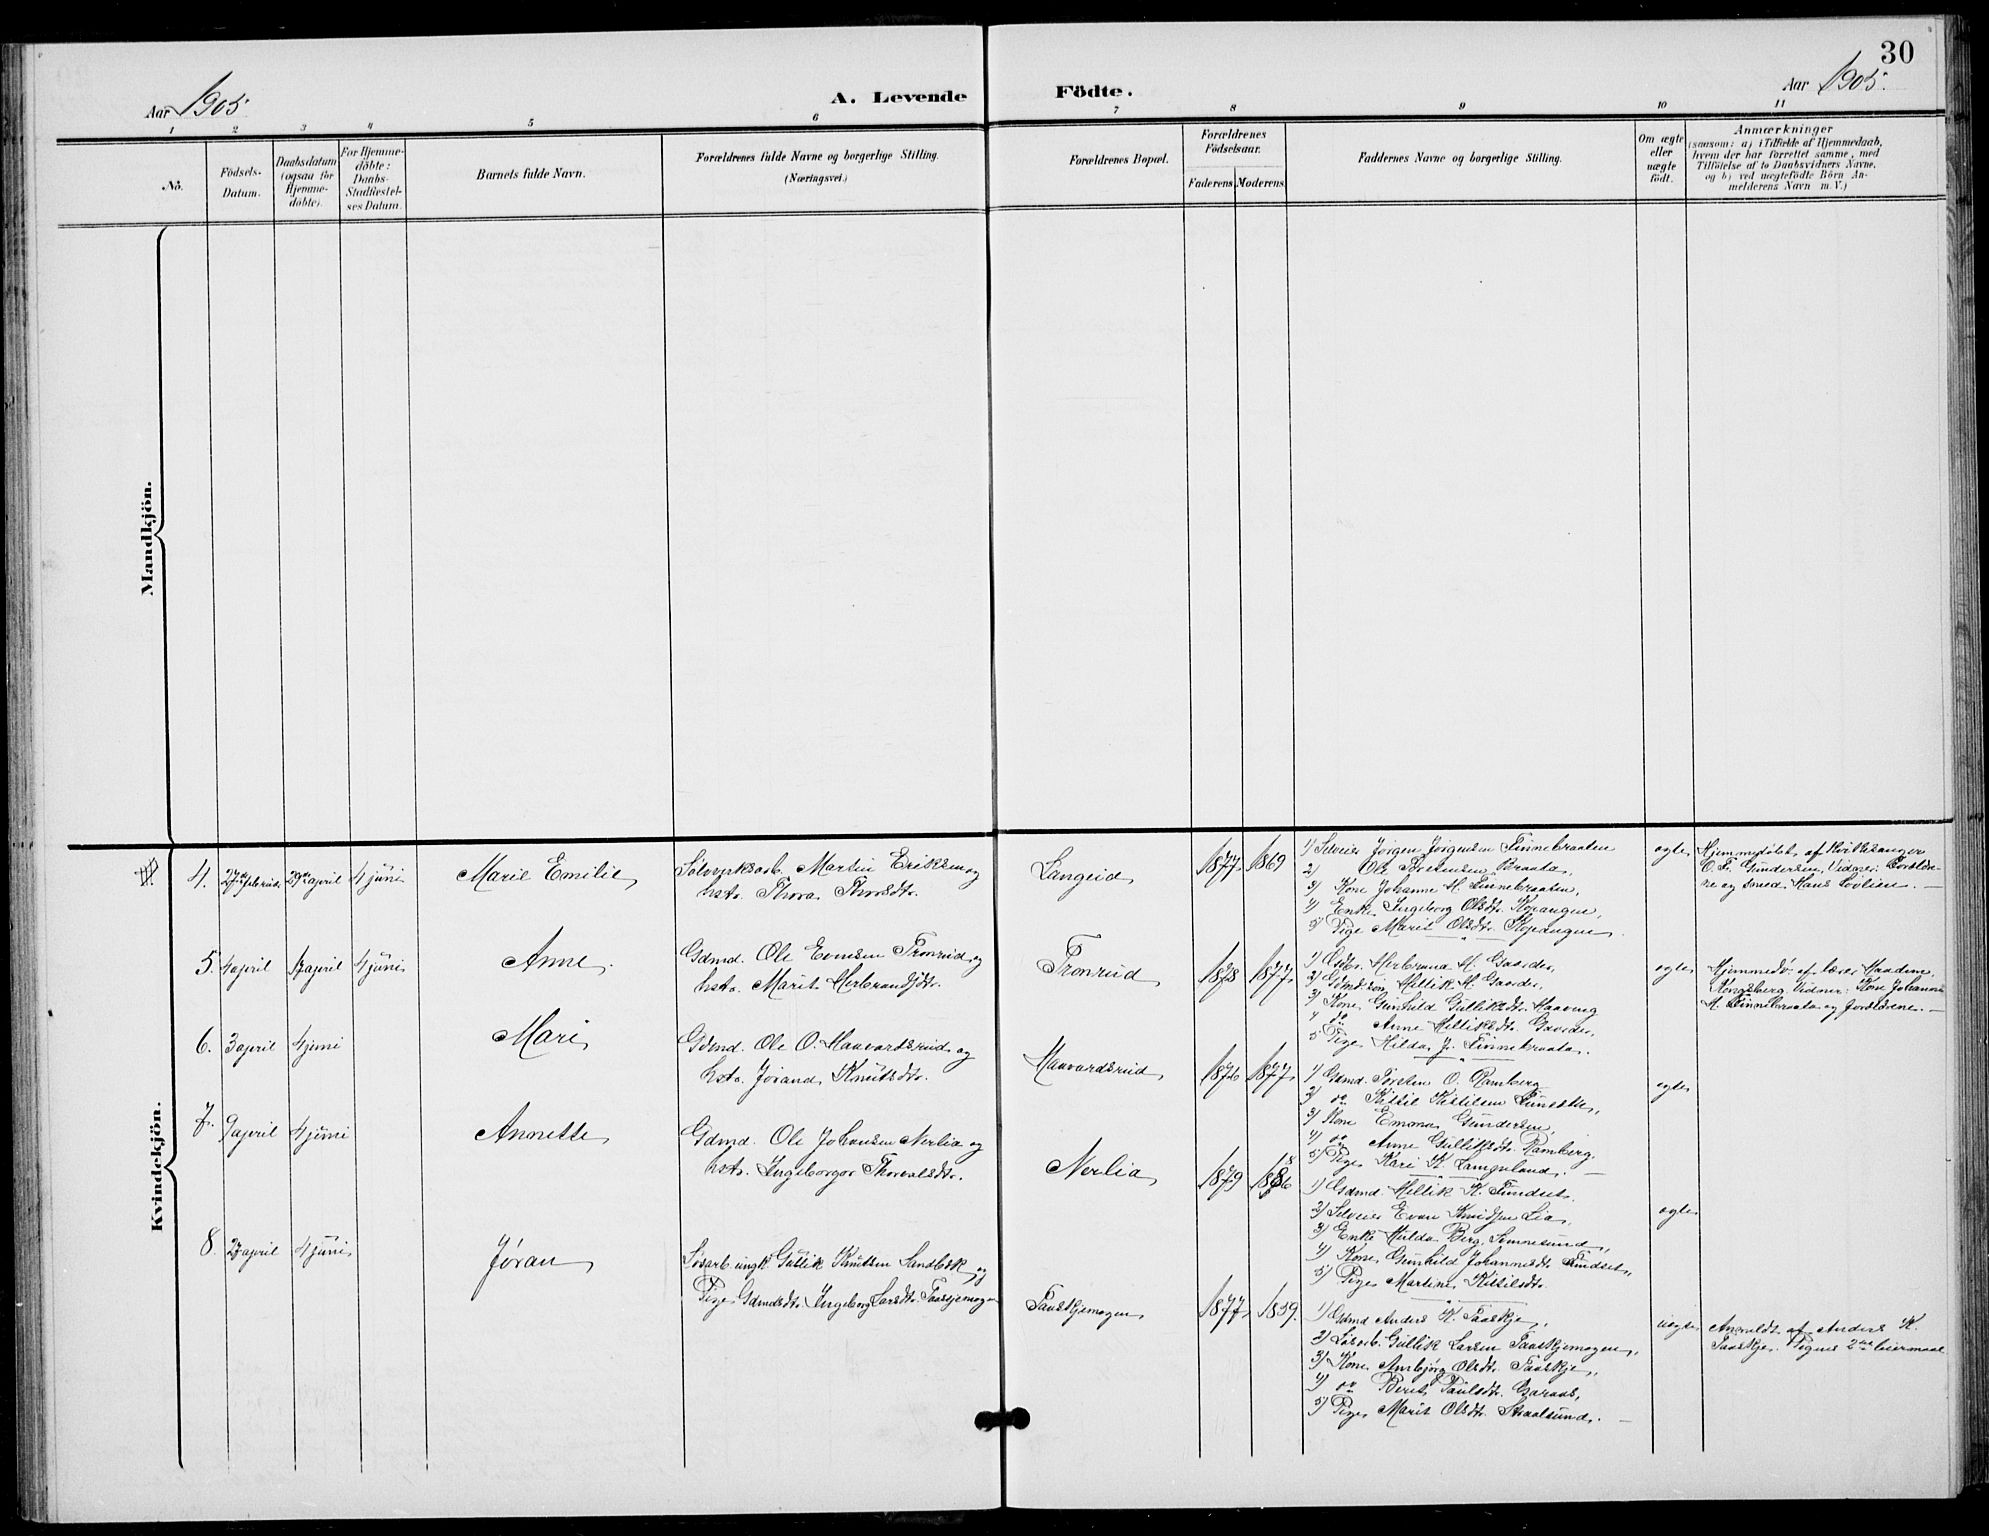 30
Aar 1905.
A. Levende Födte.
Aar 1905.
1 2 3 4 5 6 7 8 9 10 11
No.
Födsels-Datum.
Daabsdatum (ogsaa for Hjemme-döbte).
For Hjemme-döbte: Daabs-Stadfæstel-ses Datum.
Barnets fulde Navn.
Forældrenes fulde Navne og borgerlige Stilling. (Næringsvei.)
Forældrenes Bopæl.
Forældrenes Födselsaar.
Faderens. Moderens.
Faddernes Navne og borgerlige Stilling.
Om ægte eller uægte födt.
Anmærkninger
(saasom: a) i Tilfælde af Hjemmedaab,
hvem der har forrettet samme, med
Tilföielse af to Daabsvidners Navne,
og b) ved uægtefödte Börn An-
melderens Navn m. V.)
Mandkjön.
Kvindekjön.
4. 27de februar 29de april 4 juni
Marie Emilie
Sølvverksarb. Martin Eriksen og
hst. Thora Thorsdtr.
Langeid
1877 1869
1) Selveier Jørgen Jørgensen Finnebraaten
2) Ole Torstensen Braata,
3) Kone Johanne H. Finnebraaten,
4) Enke Ingeborg Olsdtr. Kopangen,
5) Pige Marit Olsdtr. Kopangen.
ægte
Hjemmedøbt af Kirkesanger
O. F. Gundersen, Vidner: Forældre-
ne og smed Hans Lovlien. —
5. 4 april 12 april 4 juni
Anne.
Gdmd. Ole Evensen Tronrud og
hst. Marit Herbrandsdtr.
Tronrud
1878 1877
1) Gdbr. Herbrand H. Gaarder,
2) Gdmd.søn Hellik H. Gaarder,
3) Kone Gunhild Gulliksdtr. Haavrug
4 do Anne Helliksdtr. Gaarder,
5 Pige Hilda J. Finnebraata.
ægte
Hjemmedø. af lærer Haadene,
Kongsberg. Vidner: Kone Johanne
H. Finnebraata og Forældrene. —
6. 3 april 4 juni
Mari
Gdmd. Ole O. Haavardsrud og
hst. Jorand Knutsdtr.
Haavardsrud
1876 1877
1) Gdmd. Torsten O. Ramberg
2) do Kittil Kittilsen
3) Kone Emma Gundersen,
4) do Anne Gulliksdtr. Ramberg.
5) Pige Kari K. Langeland. —
ægte
7. 9 april 4 juni
Annette
Gdmd. Ole Johansen Nerlia og
hst. Ingeborg Thorvalsdtr.
Nerlia
1879 1886
1) Gdmd. Hellik K. Fundset.
2) Selveier Even Knudsen Lia,
3) Enke Hulda Berg, Svinesund,
4) Kone Gunhild Johannesdtr. Fundset,
5) Pige Martine Kittilsdtr.
ægte
8. 27 april 4 juni
Jøran
Løsarb. ungk. Gullik Knutsen Sandbæk og
Pige Gdmdsdtr. Ingeborg Larsdtr. Taaskjemogen
Taaskjemogen
1877 1859.
1) Gdmd Anders K. Taaskje,
2) Løsarb. Gullik Larsen Taaskjemogen,
3) Kone Ambjørg Olsdtr. Taaskje,
4) do Berit Paulsdtr. Garaas,
5) Pige Marit Olsdtr. Straalsund. —
uægte
Anmeldt af Anders K.
Taaskje. Pigens 2det leiermaal